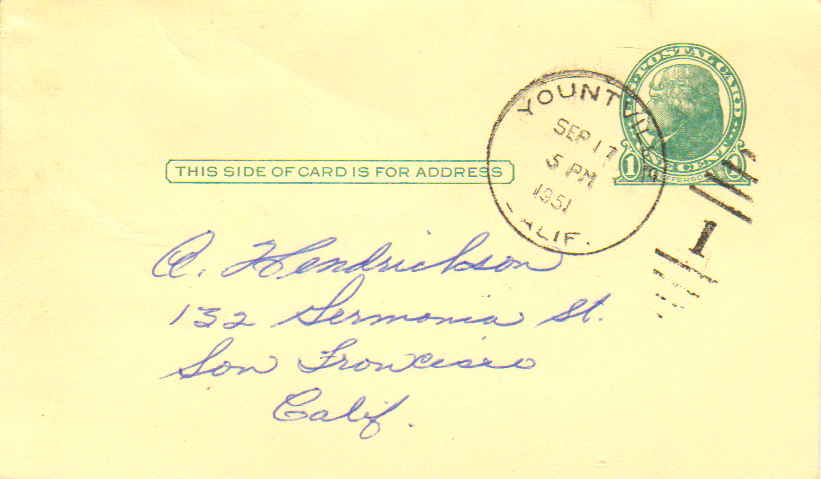 U.S. POSTAL CARD
ONE CENT
1
YOUNTVILLE
SEP 17
5 PM
1951
CALIF.
1
THIS SIDE OF CARD IS FOR ADDRESS
A. Hendrickson
132 Germania St.
San Francisco
Calif.